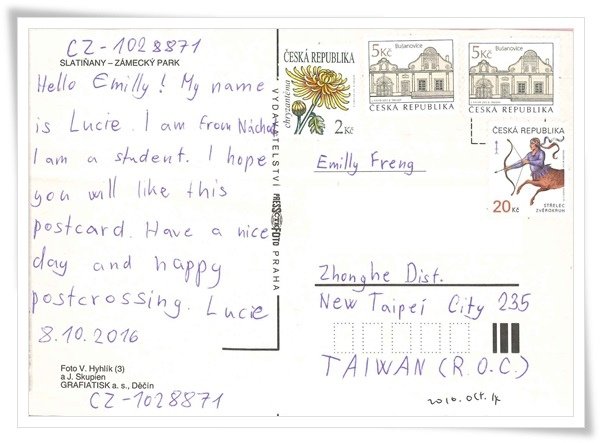 CZ-1028871
SLATIŇANY – ZÁMECKÝ PARK
Hello Emilly! My name
is Lucie. I am from Náchod
I am a student. I hope
you will like this
postcard. Have a nice
day and happy
postcrossing. Lucie
8.10.2016
Foto V. Hyhlík (3)
a J. Skupien
GRAFIATISK a. s., Děčín
CZ-1028871
VYDAVATELSTVÍ PRESSFOTO PRAHA
ČESKÁ REPUBLIKA
Chryzantéma
2 Kč
5 Kč
Bušanovice
ČESKÁ REPUBLIKA
5 Kč
Bušanovice
ČESKÁ REPUBLIKA
ČESKÁ REPUBLIKA
20 Kč
STŘELEC
ZVĚROKRUH
Emilly Freng
Zhonghe Dist.
New Taipei City 235
TAIWAN (R.O.C.)